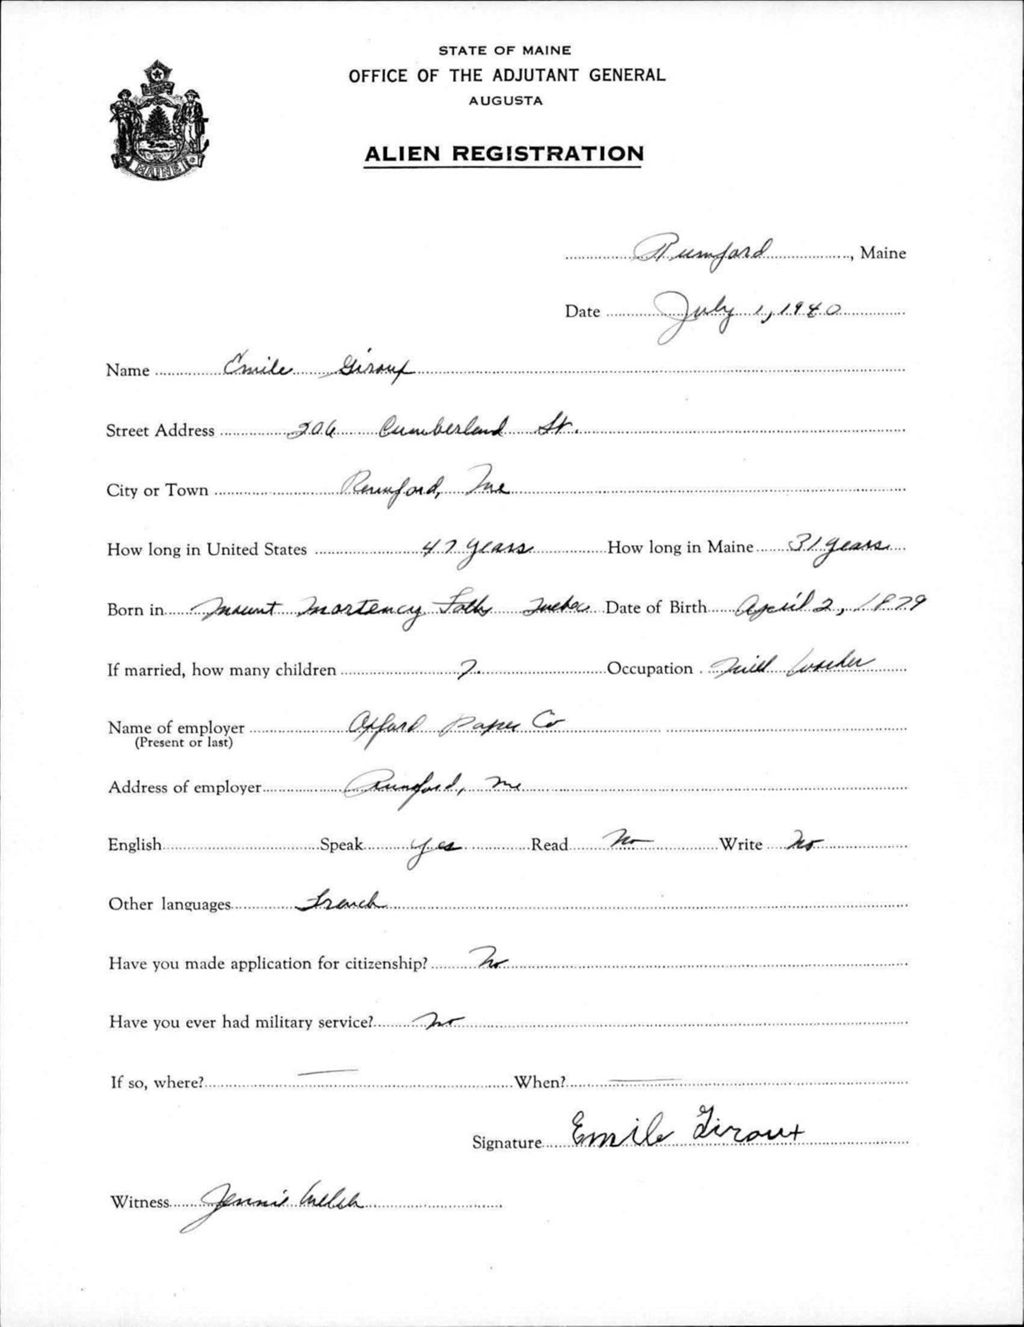 STATE OF MAINE
OFFICE OF THE ADJUTANT GENERAL
AUGUSTA
ALIEN REGISTRATION
MAINE
Rumford, Maine
Date July 1, 1940
Name Emile Giroux
Street Address 206 Cumberland St.
City or Town Rumford, Me
How long in United States 47 years How long in Maine 31 years
Born in Mount Mortency Falls Quebec Date of Birth April 2, 1879
If married, how many children 7 Occupation Mill Worker
Name of employer Oxford Paper Co
(Present or last)
Address of employer Rumford, Me
English Speak Yes Read No Write No
Other languages French
Have you made application for citizenship? No
Have you ever had military service? No
If so, where? — When? —
Signature Emile Giroux
Witness Jennie Welch